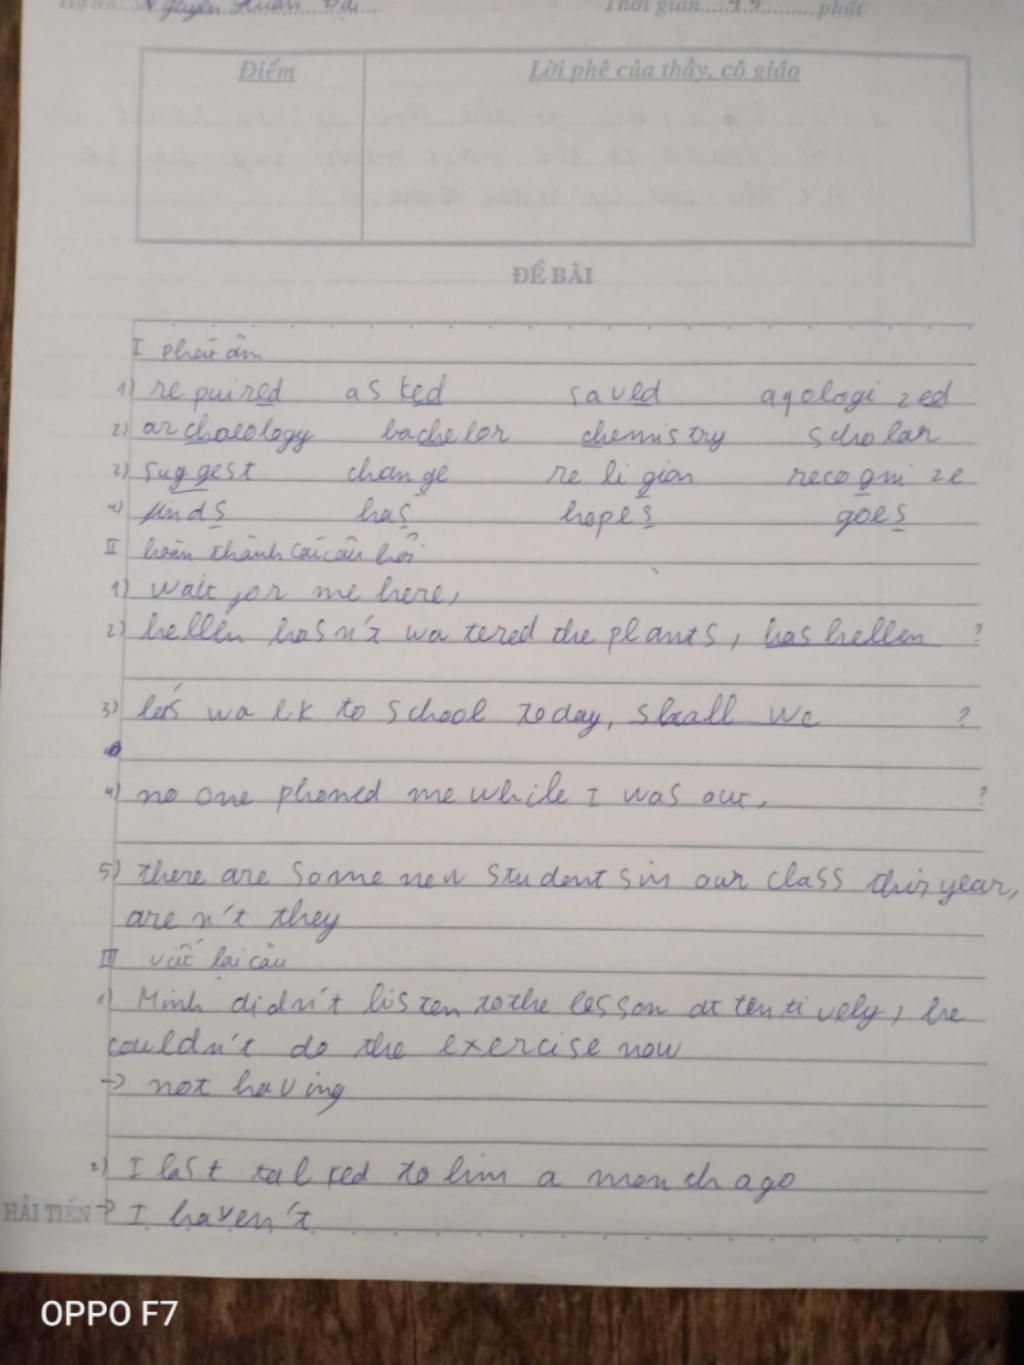 Nguyễn Xuân Đại
Thời gian....45.......phút
Điểm
Lời phê của thầy, cô giáo
ĐỀ BÀI
I phát âm
1) repuired asked saved aqologized
2) archaeology bachelor chemistry scholar
3) suggest change religion recognize
4) finds has hopes goes
II hoàn thành các câu hỏi
1) wait for me here,
2) hellen hasn't watered the plants, has hellen ?
3) let's walk to school today, shall we ?
4) no one phoned me while I was out, ?
5) there are some new students in our class this year,
aren't they
III viết lại câu
1) Minh didn't listen to the lesson attentively, he
couldn't do the exercise now
-> not having
2) I last talked to him a month ago
HẢI TIẾN -> I haven't
OPPO F7